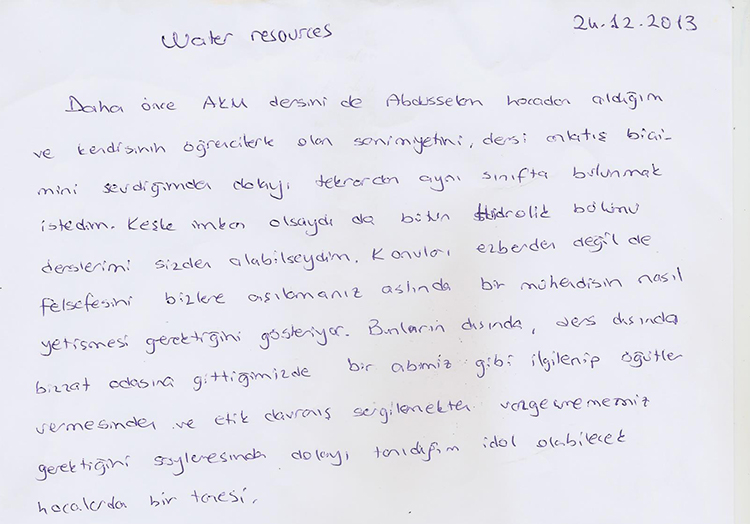 Water resources
24.12.2013
Daha önce AKM dersini de Abdusselam hocadan aldığım
ve kendisinin öğrencilerle olan samimiyetini, dersi anlatış biçi-
mini sevdiğimden dolayı tekrardan aynı sınıfta bulunmak
istedim. Keşke imkan olsaydı da bütün Hidrolik bölümü
derslerimi sizden alabilseydim. Konuları ezberden değil de
felsefesini bizlere aşılamanız aslında bir mühendisin nasıl
yetişmesi gerektiğini gösteriyor. Bunların dışında, ders dışında
bizzat odasına gittiğimizde bir abimiz gibi ilgilenip öğütler
vermesinden ve etik davranış sergilemekten vazgeçmememiz
gerektiğini söylemesinden dolayı tanıdığım idol olabilecek
hocalarda bir tanesi.